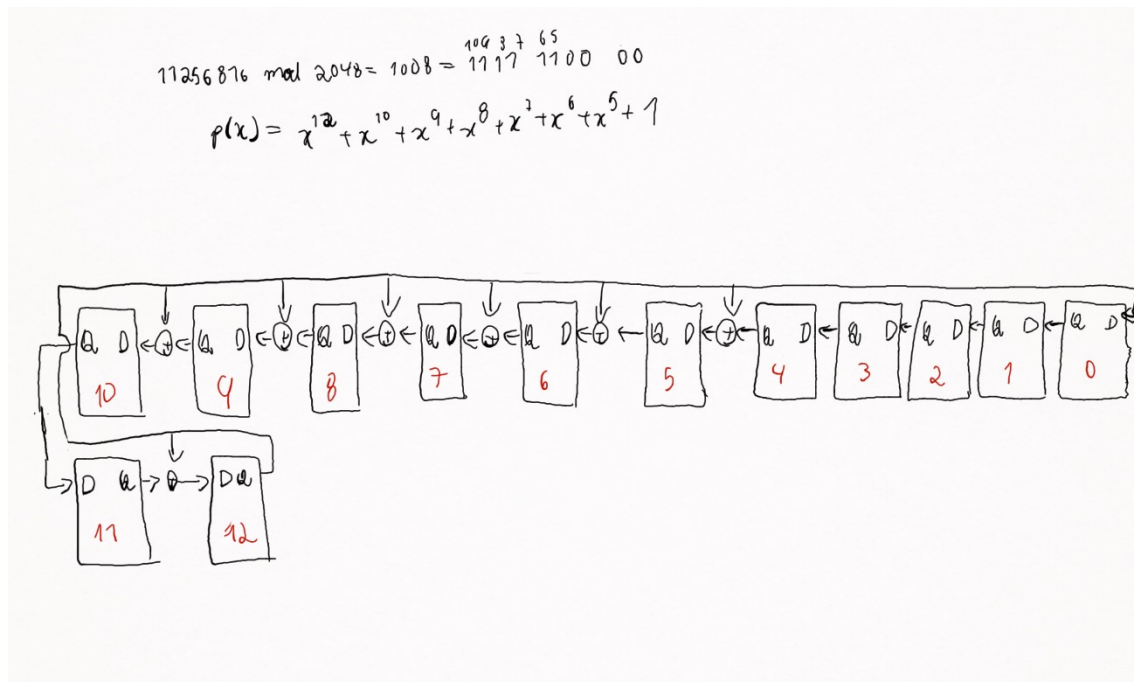 109 8 7 65
11256816 mod 2048 = 1008 = 1111 1100 00
p(x) = x¹² + x¹⁰ + x⁹ + x⁸ + x⁷ + x⁶ + x⁵ + 1
Q D Q D Q D Q D Q D Q D Q D Q D Q D Q D Q D
10 9 8 7 6 5 4 3 2 1 0
D Q D Q
11 12